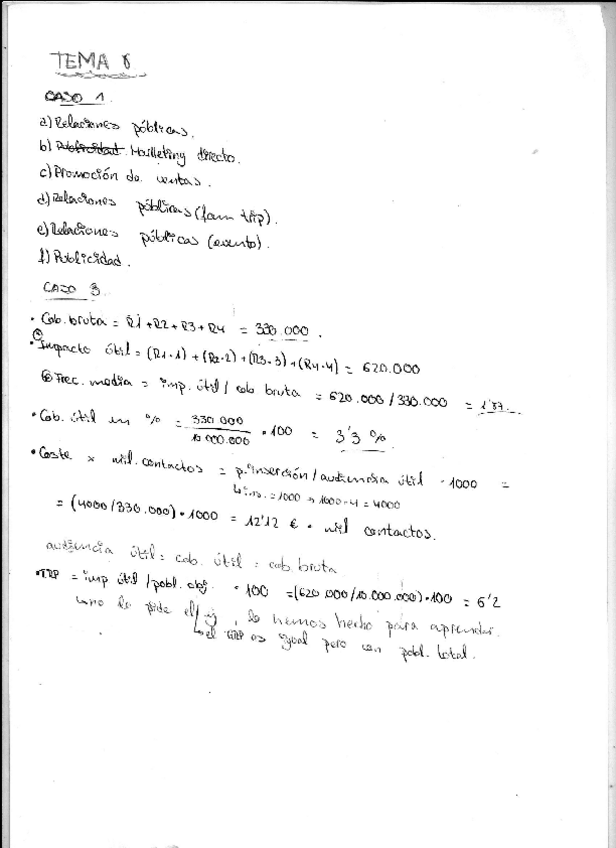 TEMA 8
CASO 1.
a) Relaciones públicas.
b) Publicidad. Marketing directo.
c) Promoción de ventas.
d) Relaciones públicas (fam trip).
e) Relaciones públicas (evento).
f) Publicidad.
CASO 3.
• Cob. bruta = R1 + R2 + R3 + R4 = 330.000.
• Impacto útil = (R1·1) + (R2·2) + (R3·3) + (R4·4) = 620.000
Frec. media = imp. útil / cob bruta = 620.000 / 330.000 = 1'87.
• Cob. útil en % = 330 000 / 10 000.000 • 100 = 3'3 %.
• Coste x mil. contactos = p. inserción / audiencia útil · 1000 =
↳ ins. = 1000 → 1000·4 = 4000
= (4000 / 330.000) • 1000 = 12'12 € • mil contactos.
audiencia útil = cob. útil = cob bruta
• TRP = imp útil / pobl. obj. • 100 = (620 000 / 10.000.000) • 100 = 6'2
↳ no lo pide el ej, lo hemos hecho para aprender.
↳ el GRP es igual pero con pobl. total.